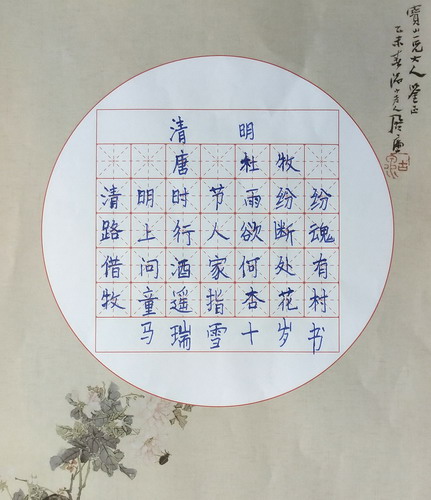 清明
唐 杜牧
清明时节雨纷纷
路上行人欲断魂
借问酒家何处有
牧童遥指杏花村
马瑞雪十岁书